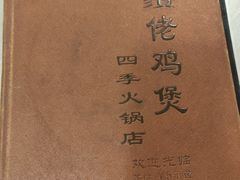 佬鸡煲
四季火锅店
欢迎光临